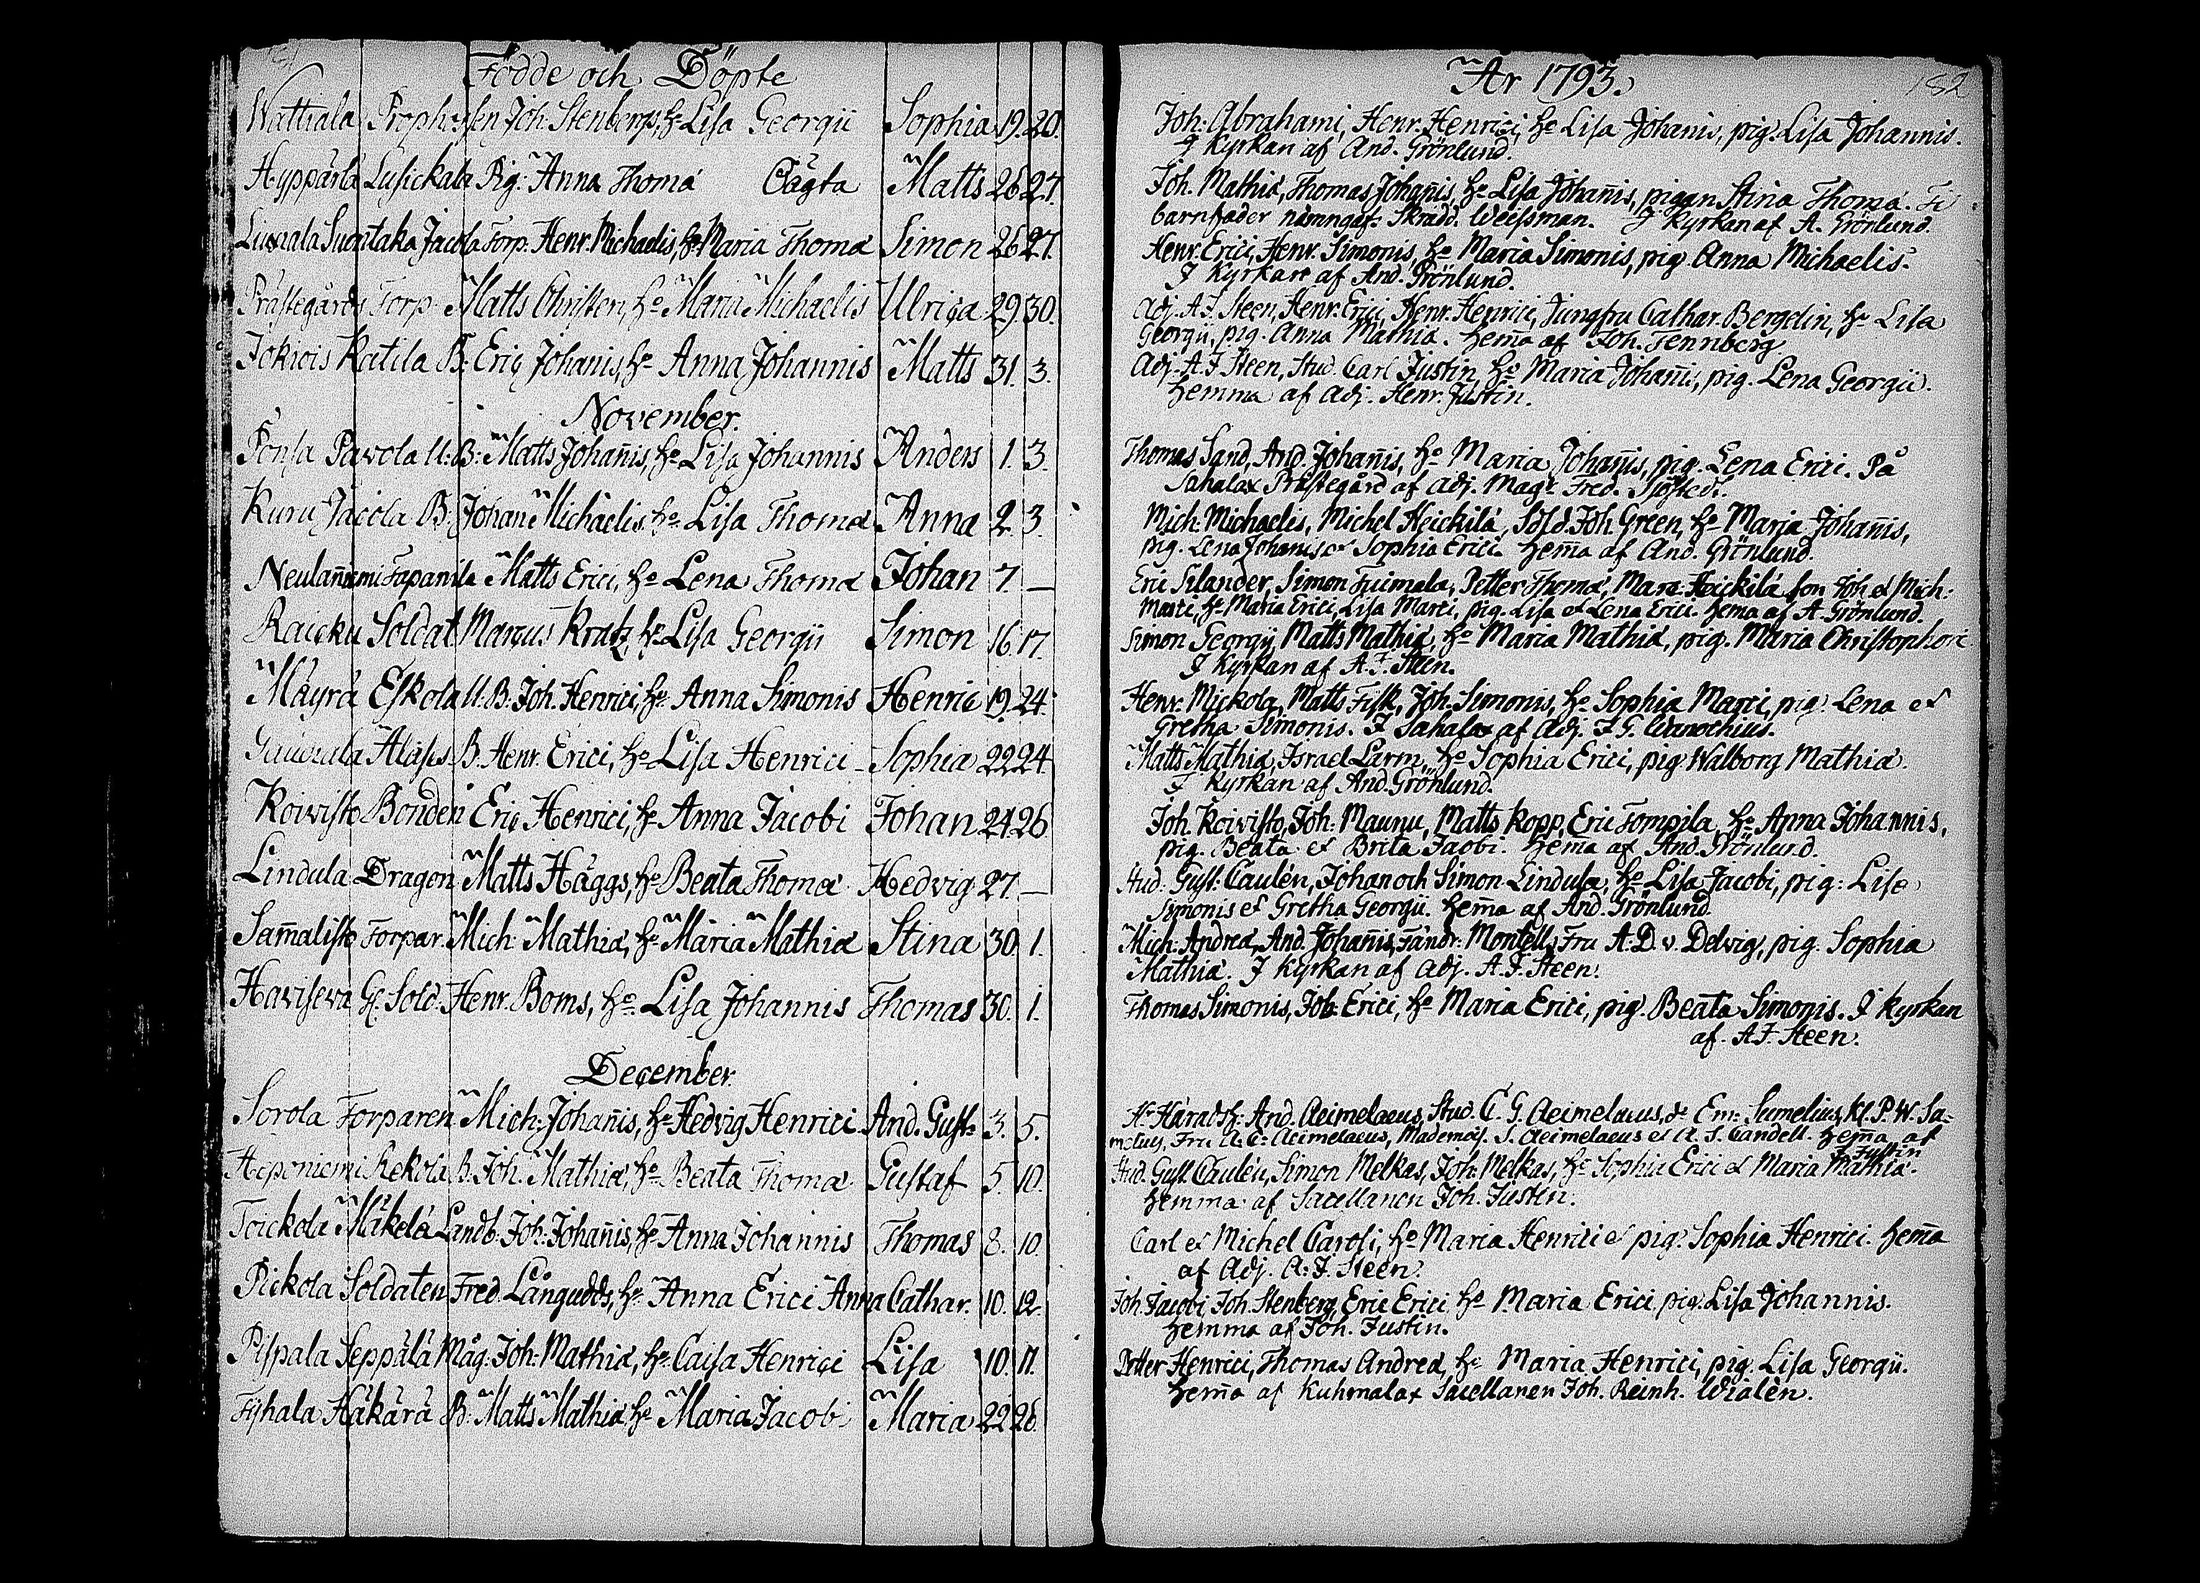 Födde och Döpte
Wattiala Prophossen Joh. Stenbergs, h. Lisa Georgii Sophia 19. 20.
Hyppärlä Lusickala Pig. Anna Thomæ Oägta Matts 26 27.
Suontaka Jacola Torp. Henr. Michaelis, h. Maria Thomæ Simon 26 27.
Prästegårds Torp. Matts Christers, h. Maria Michaelis Ulrica 29. 30.
Jokiois Katila B. Eric Johanis, h. Anna Johannis Matts 31. 3.
November.
Ponsa Pavola U. B. Matts Johan̄is, h. Lisa Johannis Anders 1. 3.
Kuru Jacola B. Johan Michaelis, h. Lisa Thomæ Anna 2. 3.
Neulaniemi Tapanila Matts Erici, h. Lena Thomæ Johan 7. —
Raicku Soldat Marcus Kratz, h. Lisa Georgii Simon 16 17.
Mäyrä Eskola U. B. Joh. Henrici, h. Anna Simonis Henric 19. 24.
B. Henr. Erici, h. Lisa Henrici Sophia 22 24
Koivisto Bonden Eric Henrici, h. Anna Jacobi Johan 24 26
Lindula Dragon Matts Häggs, h. Beata Thomæ Hedvig 27 —
Sam̄alisto Torpar. Mich. Mathiæ, h. Maria Mathiæ Stina 30. 1.
Haviseva Sold. Henr. Boms, h. Lisa Johannis Thomas 30. 1.
December
Sorola Torparen Mich: Johan̄is, h. Hedvig Henrici And. Gust. 3. 5.
Haponiemi Rekola B. Joh. Mathiæ, h. Beata Thomæ Gustaf 5. 10.
Toickola Mäkelä Landb. Joh: Johan̄is, h. Anna Johannis Thomas 8. 10
Pickola Soldaten Fred. Långudds, h. Anna Erici Anna Cathar. 10. 12.
Pispala Seppälä Måg. Joh: Mathiæ, h. Caisa Henrici Lisa 10. 11.
Tyhala Häkärä B. Matts Mathiæ, h. Maria Jacobi Maria 22 26.
År 1793.
182
Joh. Abrahami, Henr. Henrici, h. Lisa Johanis, pig. Lisa Johannis.
J Kyrkan af And. Grönlund.
Joh. Mathiæ, Thomas Johan̄is, h. Lisa Johan̄is, pigan Stina Thomæ. Til
barnfader namngaf: Skrädd. Weissman. J Kyrkan af A. Grönlund
Henr. Erici, Henr. Simonis, h. Maria Simonis, pig. Anna Michaelis.
J Kyrkan af And. Grönlund.
Adj. A. F. Steen, Henr. Erici, Henr. Henrici, Jungfru Cathar. Bergelin, h. Lisa
Georgii, pig. Anna Mathiæ. hem̄a af Joh. Tennberg
Adj. A F Steen, Stud. Carl Justin, h. Maria Johan̄is, pig. Lena Georgii.
hemma af Adj. Henr. Justin.
Thomas Sand, And. Johan̄is, h. Maria Johan̄is, pig. Lena Erici. På
Sahalax Prästegård af Adj. Mag. Fred. Sjöstedt.
Mich. Michaelis, Michel Heickilä, Sold. Joh. Green, h. Maria Johan̄is,
pig. Lena Johanis et Sophia Erici. hem̄a af And. Grönlund.
Eric Silander, Simon Tuimala, Petter Thomæ, Marc. Heickilä, son Joh. et Mich.
Marci, h. Maria Erici, Lisa Marci, pig. Lisa et Lena Erici. hema af A. Grönlund.
Simon Georgii, Matts Mathiæ, h. Maria Mathiæ, pig. Maria Christophori
J Kyrkan af A. F. Steen.
Henr. Mickola, Matts Fisk, Joh. Simonis, h. Sophia Marci, pig. Lena et
Gretha Simonis. J Sahalax af Adj. F. G. Wanochius.
Matts Mathiæ, Israel Larm, h. Sophia Erici, pig Walborg Mathiæ.
J Kyrkan af And. Grönlund.
Joh. Koivisto, Joh: Maunu, Matts Kopp, Eric Tompila, h. Anna Johannis,
pig. Beata et Brita Jacobi. hema af And. Grönlund.
Stud. Gust. Caulén, Johan och Simon Lindula, h. Lisa Jacobi, pig: Lisa
Simonis et Gretha Georgii. hem̄a af And. Grönlund
Mich. Andreæ, And. Johan̄is, Fändr. Montell, Fru A. D. v. Delvig, pig. Sophia
Mathiæ. J Kyrkan af Adj. A. F. Steen.
Thomas Simonis, Joh. Erici, h. Maria Erici, pig. Beata Simonis. J Kyrkan
af. A F. Steen.
Hr Häradsh. And. Aeimelaeus, Stud. C. G. Aeimelaeus, Em. Sumelius, P. W. Sa-
Fru A. C. Aeimelaeus, Mademois. S. Aeimelaeus et A. S. Candell. hem̄a af
J. Justin
Stud. Gust. Caulén, Simon Melkas, Joh. Melkas, h. Sophia Erici et Maria Mathiæ.
hemma af Sacellanen Joh. Justin.
Carl et Michel Caroli, h. Maria Henrici et pig. Sophia Henrici. hem̄a
af Adj. A. F. Steen.
Joh. Jacobi, Joh. Stenberg, Eric Erici, h. Maria Erici, pig. Lisa Johannis.
hemma af Joh. Justin.
Petter Henrici, Thomas Andreæ, h. Maria Henrici, pig. Lisa Georgii.
hem̄a af Kuhmalax Sacellanen Joh. Reinh. Wialén.